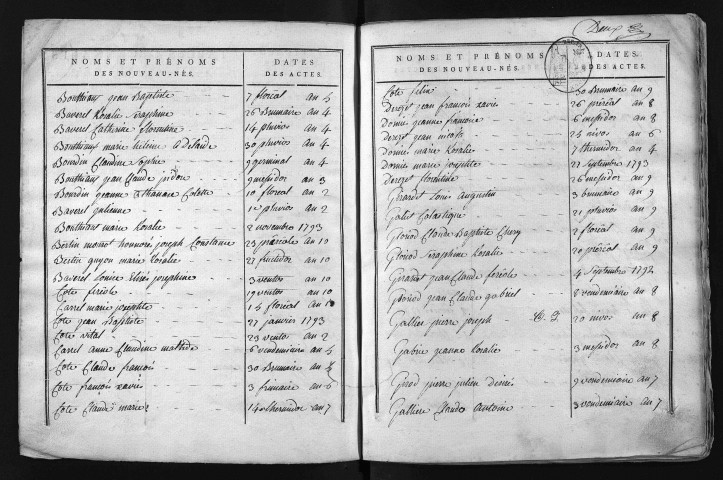 NOMS ET PRÉNOMS
DES NOUVEAU-NÉS.
DATES
DES ACTES.
Bonthiaux jean Baptiste 7 floreal an 5
Baverel Rosalie Seraphine 26 Brumaire an 4
Baverel Catherine florentine 14 pluvios an 4
Bonthiaux marie helene adelaide 30 pluvios an 4
Bourdin Claudine Sophie 9 germinal an 4
Bonthiaux jean Claude isidore 9 messidor an 3
Bourdin jeanne Colette 10 floreal an 2
Baverel julienne pluvios an 2
Bonthiaux marie Rosalie 2 novembre 1793
Bertin honnoré joseph Constance 25 prairiale an 10
Bertin guyon marie Rosalie 27 fructidor an 10
Baverel Louise Elise josephine 3 ventos an 10
Cote fereole 19 ventos an 10
Carrel marie josephte 14 floreal an 10
Cote jean Baptiste 21 janvier 1793
Cote vital 29 ventos an 2
Carrel anne Claudine mathilde 6 vendemiaire an 5
Cote Claude francois 30 Brumaire an
Cote françois xavier 3 frimaire an 6
Cote Claude marie 14 thermidor an 7
Deux
NOMS ET PRÉNOMS
DES NOUVEAU-NÉS.
DATES
DES ACTES.
Cote felix 30 Brumaire an 9
Derozet jean françois xavier 26 prereal an 8
Dornier jeanne francoise 6 messidor an 8
Derozet jean nicolas 25 nivos an 6
Dornier marie Rosalie 7 thermidor an 4
Dornier marie josephte 22 septembre 1793
Derozet florentine 26 messidor an 9
Girardet Louis Augustin 3 brumaire an 9
Gallet Colastique 21 pluvios an 9
Gloriod Claude Baptiste 2 floreal an 9
Gloriod Seraphine Rosalie 20 prereal an 9
Girardet jean Claude fereole 4 Septembre 1792
Gloriod jean Claude gabriel 8 vendemiaire an 8
Gallier pierre joseph 20 nivos an 8
Gabrie jeanne Rosalie 3 messidor an 8
Girod pierre julien desiré 9 vendemiaire an 7
Galliere Claude Antoine 3 vendemiaire an 7